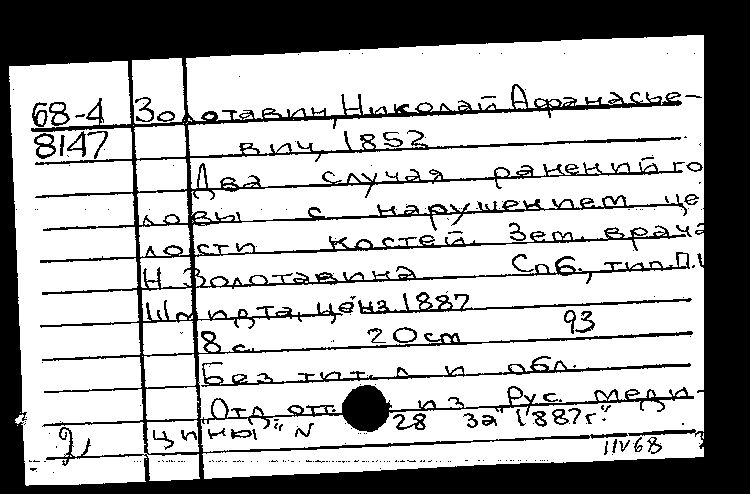 68-4 Золотавин, Николай Афанасье-
8147 вич, 1852
Два случая ранений го
ловы с нарушением це
лости костей. Зем. врача
Н. Золотавина Спб., тип. П.И
Шмидта, ценз. 1887
8 с. 20 см 93
Без тит. л. и обл.
Отд. отт. из "Рус. меди-
цины" N 28 за 1887 г."
11V68